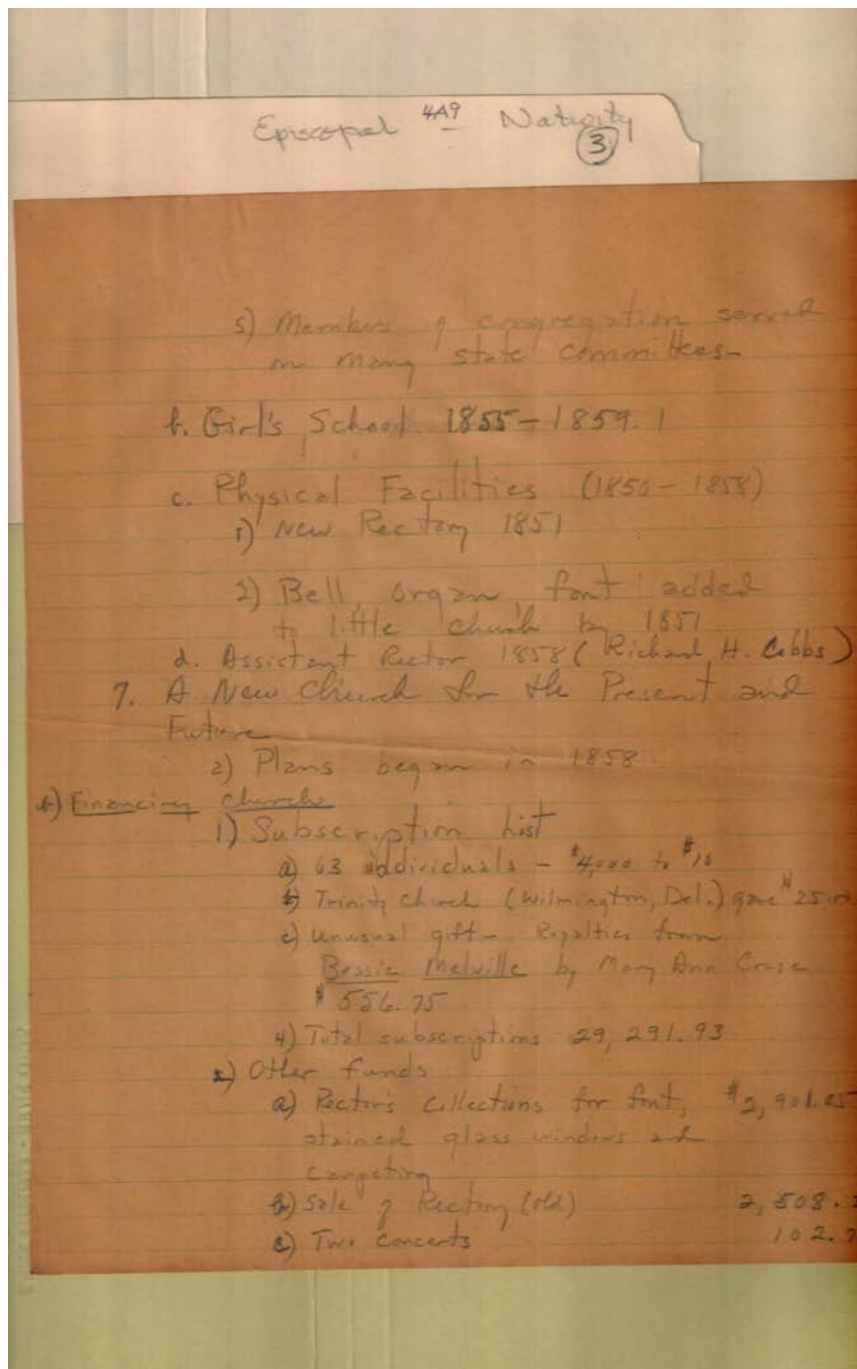 Episcopal 4A9 Nativity
3
5) Members of congregation served
on many state committees-
b. Girl's School 1855-1859.
c. Physical Facilities (1850-1858)
1) New Rectory 1851
2) Bell, organ, font added
to little church by 1851
d. Assistant Rector 1858 (Richard H. Cobbs)
7. A New Church for the Present and
Future
a) Plans began in 1858
b) Financing church
1) Subscription List
a) 63 individuals - $4,000 to $10
b) Trinity Church (Wilmington, Del.) gave
c) Unusual gift- Royalties from
Bessie Melville by Mary Ann Cruse
$ 556.75
4) Total subscriptions 29,291.93
2) Other funds
a) Rector's Collections for font, $2,901.05
stained glass windows and
carpeting
b) Sale of Rectory (old) 2,508.
c) Two concerts 102.